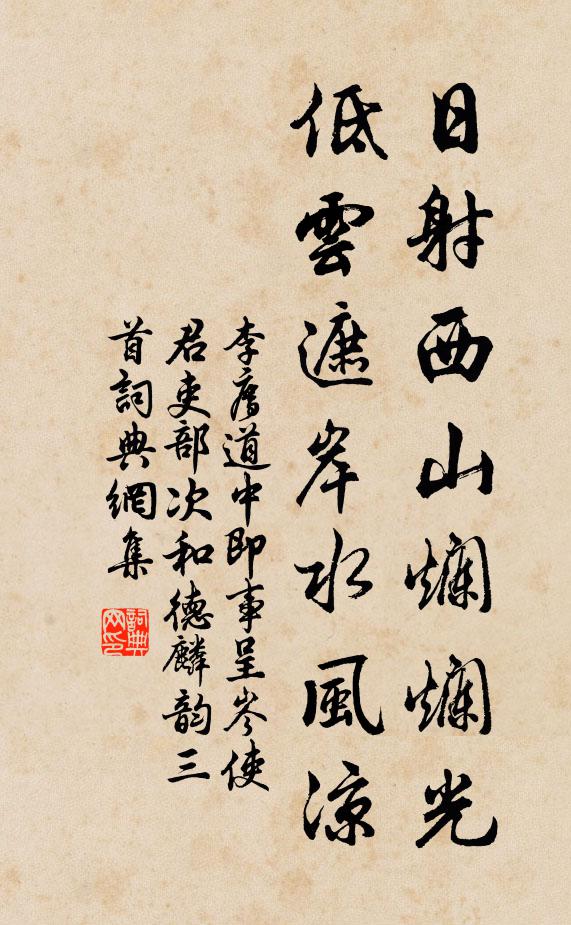 日射西山爛爛光
低雲遮岸水風涼
李廌道中即事呈岑使
君吏部次和德麟韵三
首詞典網集
詞典
网印